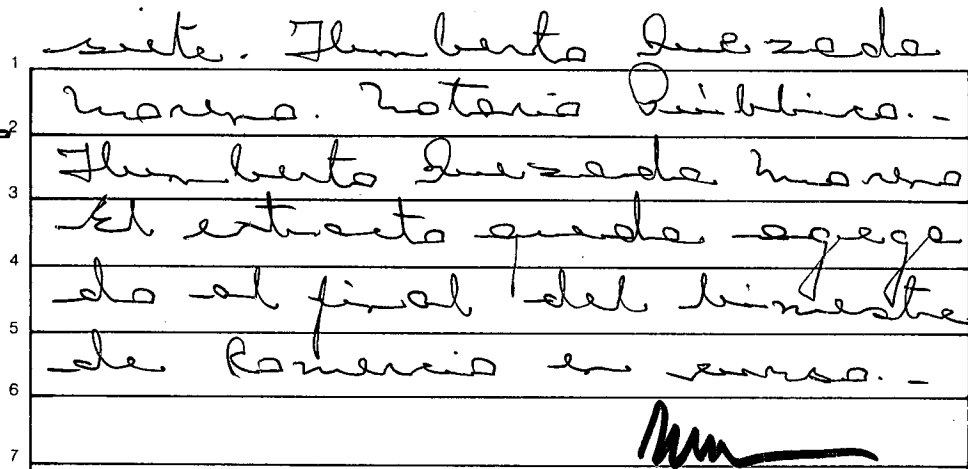 siete. Humberto Quezada
1
Moreno. Notario Público.-
2
Humberto Quezada Moreno
3
El extracto queda agrega
4
do al final del bimestre
5
de Comercio en curso.-
6
7